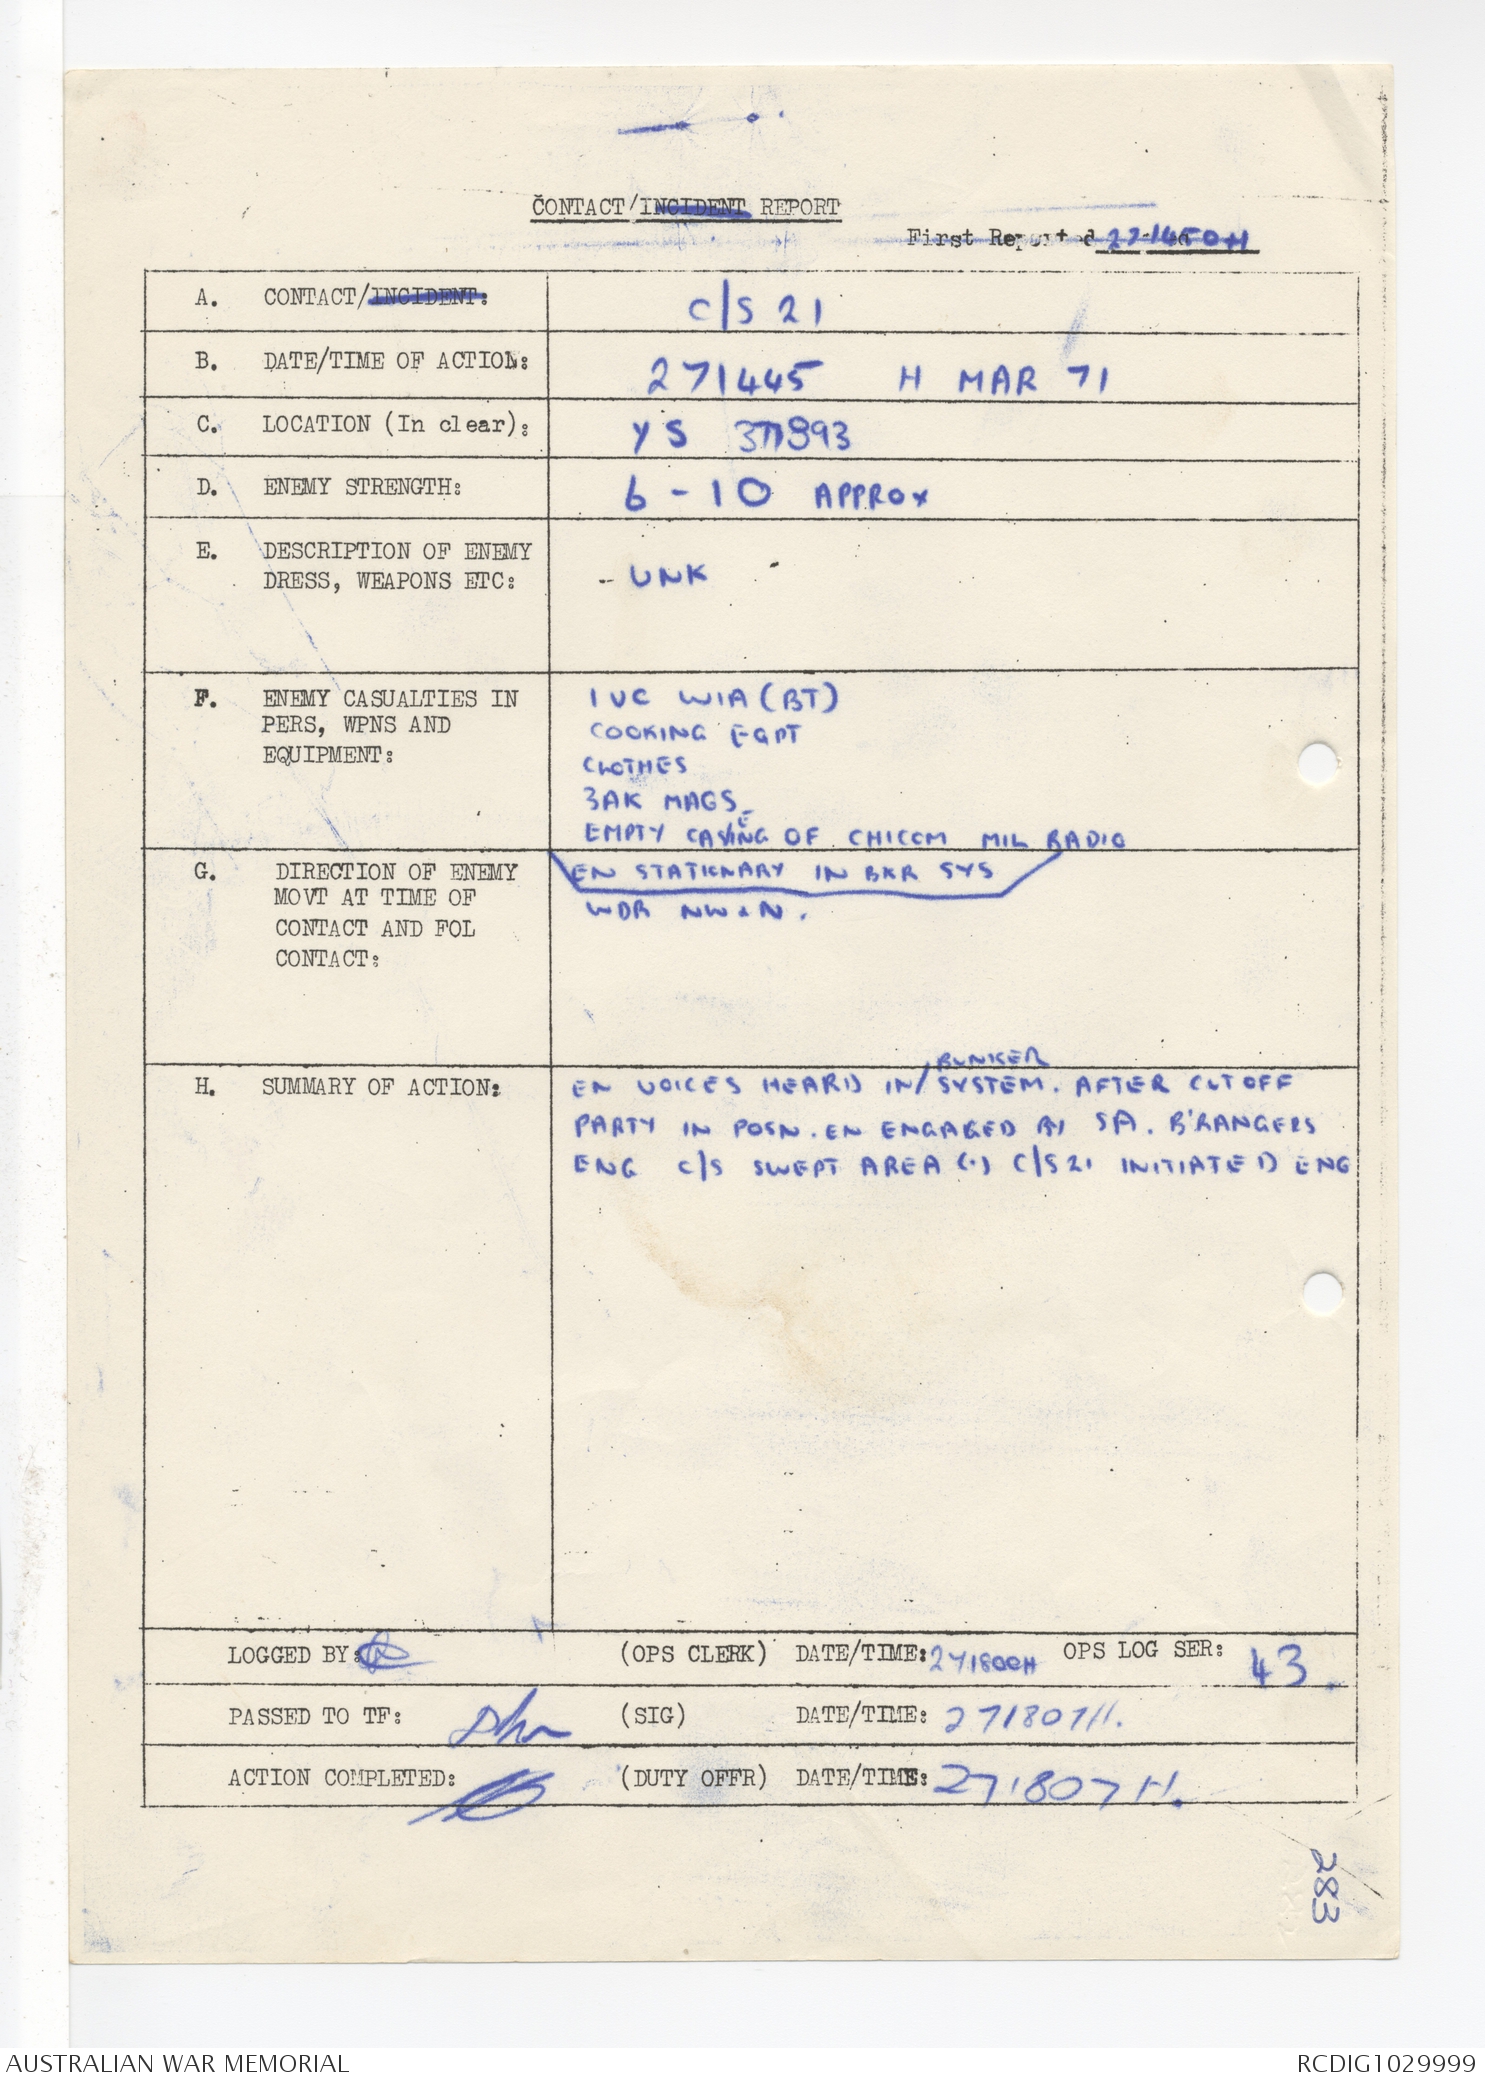 CONTACT/INCIDENT REPORT
First Reported 271450H
A. CONTACT/INCIDENT: C/S 21
B. DATE/TIME OF ACTION: 271445 H MAR 71
C. LOCATION (In clear): YS
D. ENEMY STRENGTH: 6 - 10 APPROX
E. DESCRIPTION OF ENEMY
DRESS, WEAPONS ETC: - UNK
F. ENEMY CASUALTIES IN
PERS, WPNS AND
EQUIPMENT:
1 VC WIA (BT)
COOKING EQPT
CLOTHES
3AK MAGS
EMPTY CASING OF CHICOM MIL RADIO
G. DIRECTION OF ENEMY
MOVT AT TIME OF
CONTACT AND FOL
CONTACT:
EN STATIONARY IN BKR SYS
WDR NW & N.
H. SUMMARY OF ACTION:
BUNKER
EN VOICES HEARD IN/SYSTEM. AFTER CUT OFF
PARTY IN POSN. EN ENGAGED SA. B'RANGERS
ENG C/S SWEPT AREA (.) C/S 21 INITIATED ENG
LOGGED BY: (OPS CLERK) DATE/TIME: 271800H OPS LOG SER: 43.
PASSED TO TF: (SIG) DATE/TIME: 271807H.
ACTION COMPLETED: (DUTY OFFR) DATE/TIME: 271807H.
283
AUSTRALIAN WAR MEMORIAL
RCDIG1029999